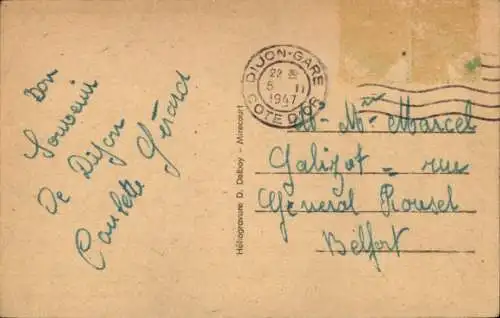 Bon
Souvenir
De Dijon
Paulette Gérard
Héliogravure D. Delboy - Mirecourt
DIJON-GARE
22 H
5 11
1947
COTE D'OR
Mr Mme Marcel
Galizot - rue
General Rousel
Belfort